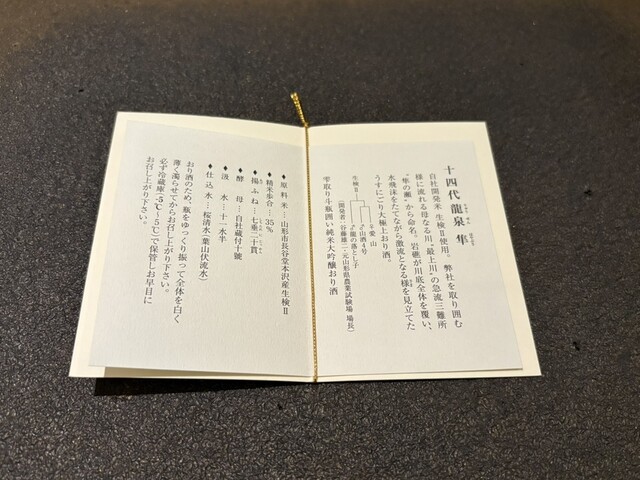 十四代龍泉 隼
自社開発米 生検Ⅱ使用。弊社を取り囲む
様に流れる母なる川"最上川"の急流三難所
"隼の瀬"から命名。岩礁が川底全体を覆い、
水飛沫をたてながら激流となる様を見立てた
うすにごり大極上おり酒。
生検Ⅱ
♀愛山
♂山酒4号
♂龍の落とし子
(開発者・谷藤雄二・元山形県農業試験場 場長)
雫取り斗瓶囲い純米大吟醸おり酒
◆原料米…山形市長谷堂本沢産生検Ⅱ
◆精米歩合…35%
◆揚ふね…七垂二十貫
◆酵母…自社蔵付十號
◆汲水…十一水半
◆仕込水…桜清水(葉山伏流水)
おり酒のため、瓶をゆっくり振って全体を白く
薄く濁らせてからお召し上がり下さい。
必ず冷蔵庫(-5℃～5℃)で保管しお早目に
お召し上がり下さい。